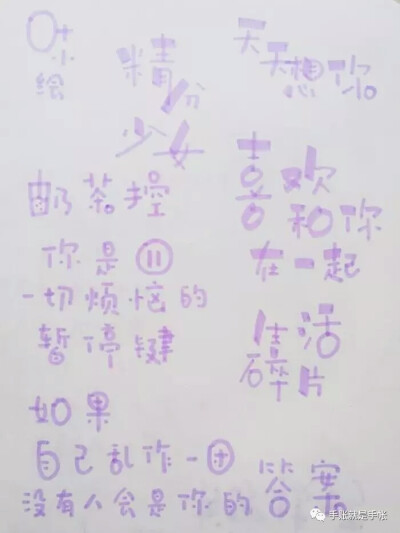 叶小绘
精分
少女
天天想你
奶茶控
喜欢
和你
在一起
你是⏸
一切烦恼的
暂停键
生活
碎片
如果
自己乱作一团
没有人会是你的答案
手帐就是手帐